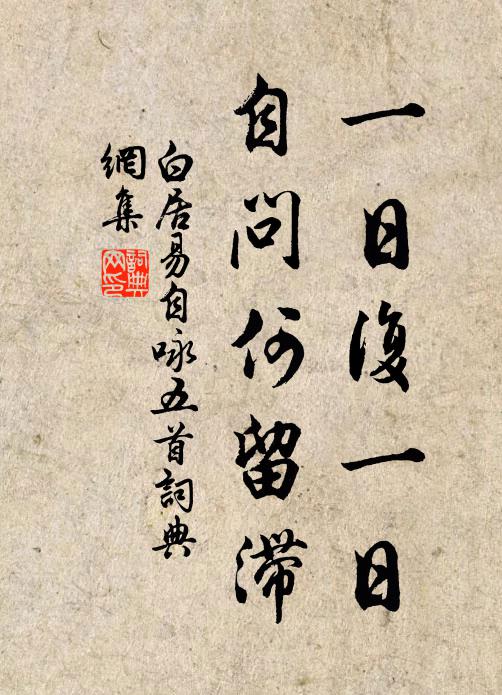 一日復一日
自問何留滞
白居易自咏五首詞典
網集
詞典
网印